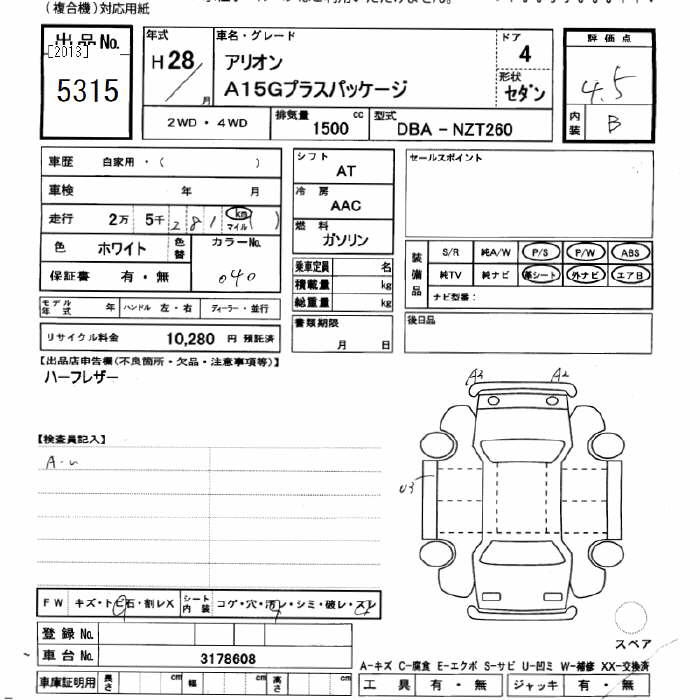 (複合機)対応用紙
出品No.
[2013]
5315
年式
H28
月
車名・グレード
アリオン
A15Gプラスパッケージ
ドア
4
形状
セダン
評価点
4.5
内装
B
2WD・4WD
排気量
1500
cc
型式
DBA-NZT260
車歴
自家用・( )
車検
年
月
走行
2万
5千
281
km
マイル
( )
色
ホワイト
色替
カラーNo.
040
保証書
有・無
モデル年式
年
ハンドル 左・右
ディーラー・並行
リサイクル料金
10,280
円
預託済
シフト
AT
冷房
AAC
燃料
ガソリン
乗車定員
名
積載量
kg
総重量
kg
書類期限
月
日
セールスポイント
装備品
S/R
純A/W
P/S
P/W
ABS
純TV
純ナビ
革シート
外ナビ
エアB
ナビ型番:
後日品
【出品店申告欄(不良箇所・欠品・注意事項等)】
ハーフレザー
【検査員記入】
A2
U3
FW
キズ・トビ石・割レX
シート内装
コゲ・穴・汚レ・シミ・破レ・スレ
登録No.
車台No.
3178608
車庫証明用
長さ
cm
幅
cm
高さ
cm
スペア
A-キズ C-腐食 E-エクボ S-サビ U-凹ミ W-補修 XX-交換済
工具
有・無
ジャッキ
有・無